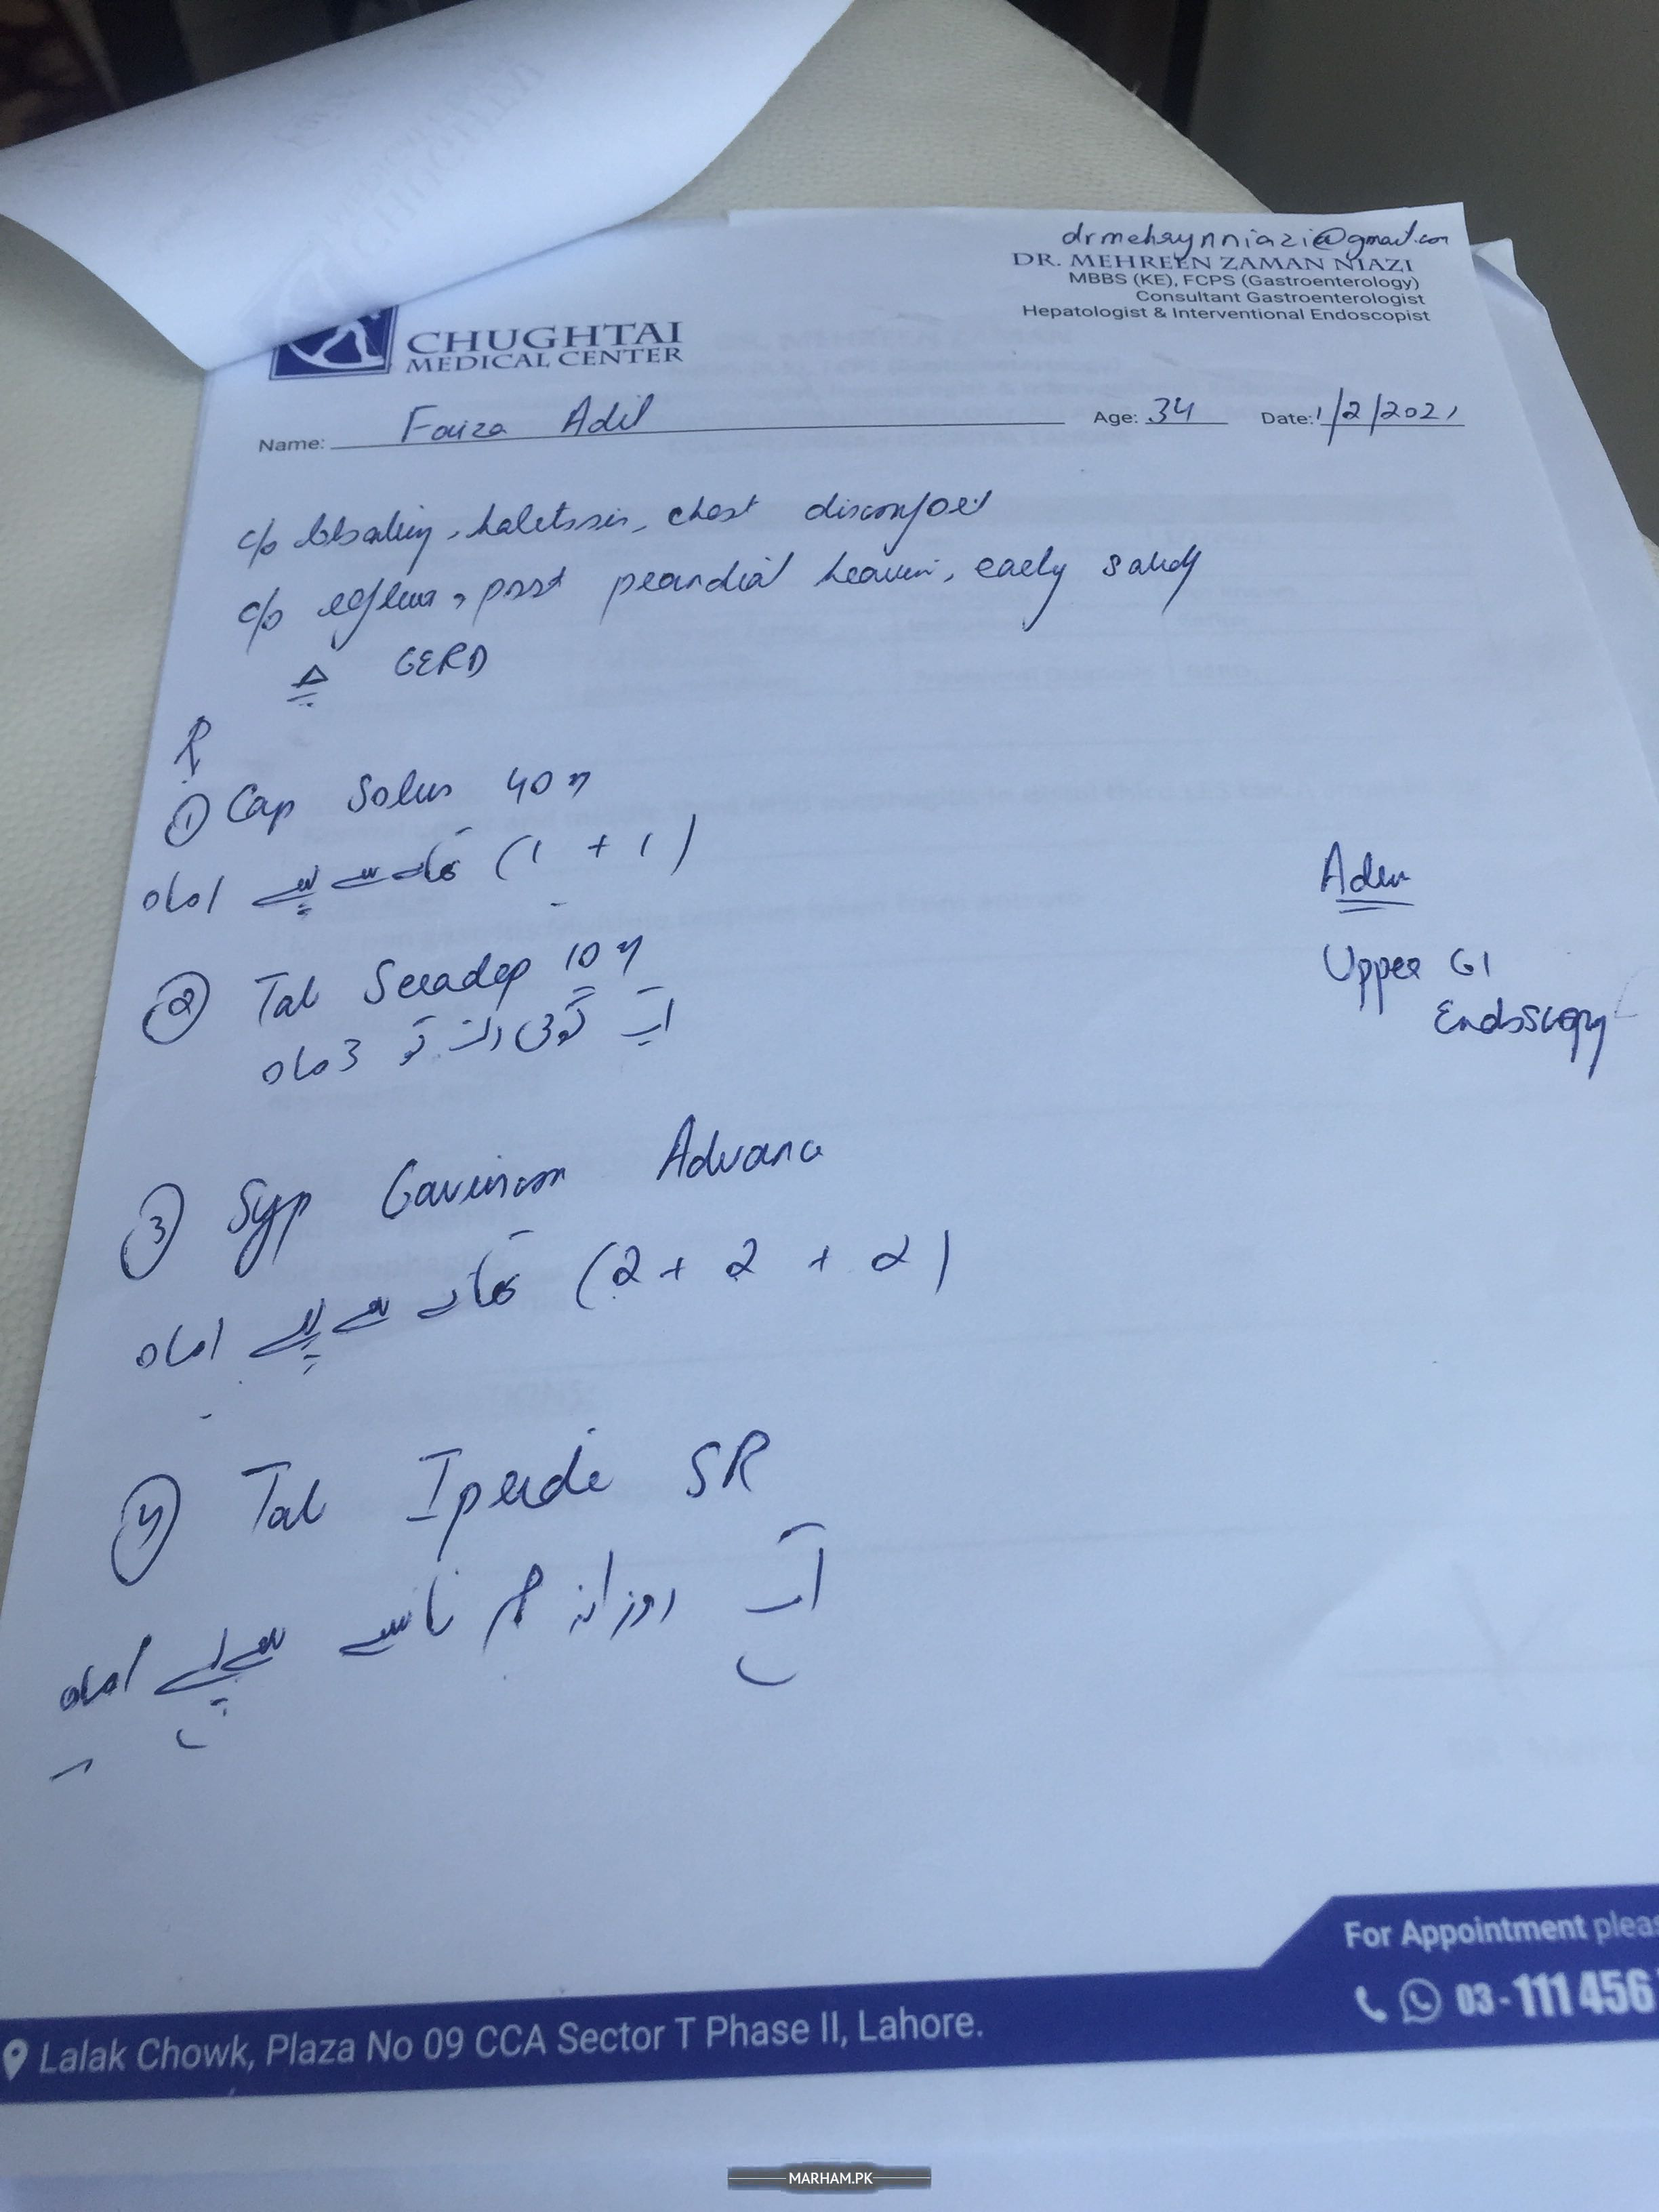 drmehrynniazi@gmail.com
DR. MEHREEN ZAMAN NIAZI
MBBS (KE), FCPS (Gastroenterology)
Consultant Gastroenterologist
Hepatologist & Interventional Endoscopist
CHUGHTAI
MEDICAL CENTER
Name: Faiza Adil Age: 34 Date: 1/2/2021
c/o bloating, halitosis, chest discomfort
c/o reflux, post prandial heaviness, early satiety
∆ GERD
℞
① Cap Solus 40
(1 + 1) کھانے سے پہلے 1 ماہ
② Tab 10
گولی رات کو 3 ماہ
Adv
Upper GI
Endoscopy
③ Syp Gaviscon Advance
(2 + 2 + 2) کھانے سے پہلے 1 ماہ
④ Tab SR
روزانہ ناشتے سے پہلے 1 ماہ
For Appointment
03-111 456
Lalak Chowk, Plaza No 09 CCA Sector T Phase II, Lahore.
MARHAM.PK